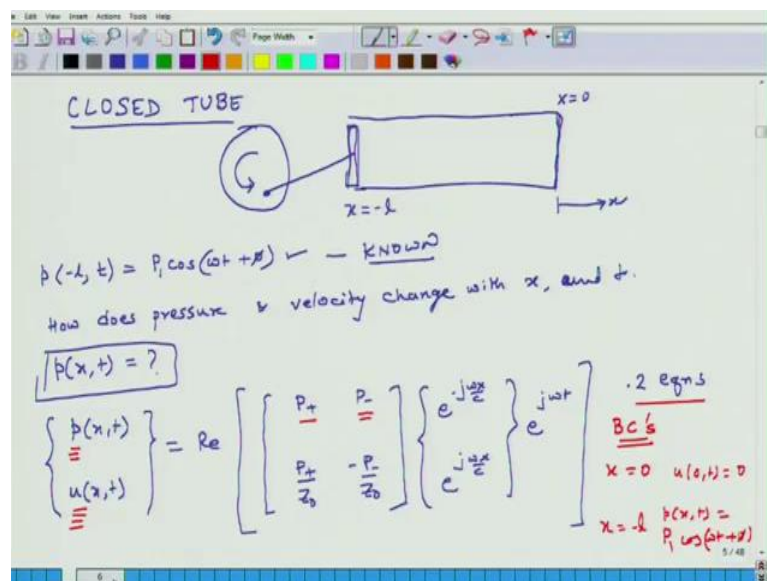 Edit View Insert Actions Tools Help
Page Width
CLOSED TUBE
x=0
x=-l
x
p(-l, t) = P₁ cos(ωt + φ) ✓ - KNOWN
How does pressure & velocity change with x, and t.
p(x,t) = ?
{ p(x,t) u(x,t) } = Re [ [ P₊ P₋ P₊/Z₀ -P₋/Z₀ ] { e^(-jωx/c) e^(jωx/c) } e^(jωt) ]
.2 eqns
BC's
x=0 u(0,t)=0
x=-l p(x,t) =
P₁ cos(ωt+φ)
5/48
6